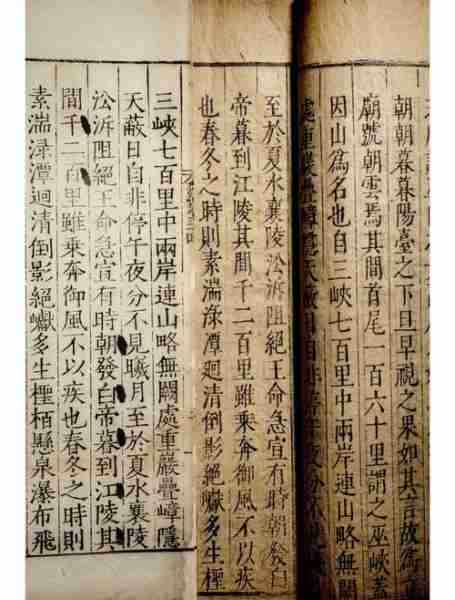 朝朝暮暮陽臺之下旦早視之果如其言故為
廟號朝雲焉其間首尾一百六十里謂之巫峽蓋
因山爲名也自三峽七百里中兩岸連山略無闕
處重巖疊嶂隱天蔽日自非停午夜分不見
至於夏水襄陵㳂泝阻絕王命急宣有時朝發白
帝暮到江陵其間千二百里雖乘奔御風不以疾
也春冬之時則素湍淥潭迴清倒影絕巘多生檉
三峽七百里中兩岸連山略無闕處重巖疊嶂隱
天蔽日自非停午夜分不見曦月至於夏水襄陵
㳂泝阻絕王命急宣有時朝發白帝暮到江陵其
間千二百里雖乘奔御風不以疾也春冬之時則
素湍淥潭迴清倒影絕巘多生檉栢懸泉瀑布飛